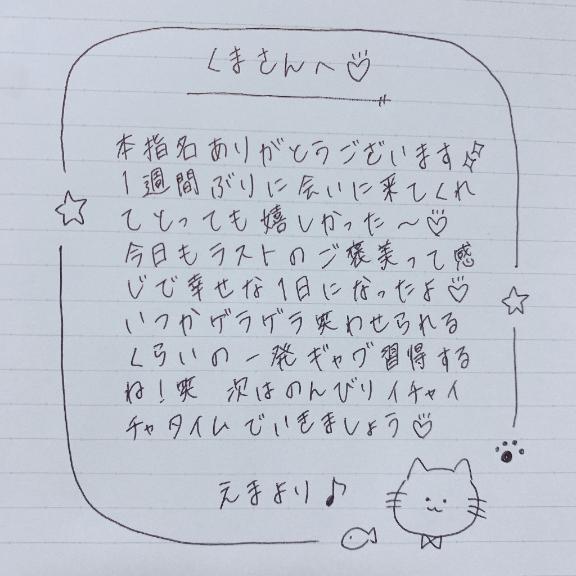 くまさんへ♡
本指名ありがとうございます✨
1週間ぶりに会いに来てくれ
てとっても嬉しかった〜♡
今日もラストのご褒美って感
じで幸せな1日になったよ♡
いつかゲラゲラ笑わせられる
くらいの一発ギャグ習得する
ね!笑 次はのんびりイチャイ
チャタイムでいきましょう♡
えまより♪